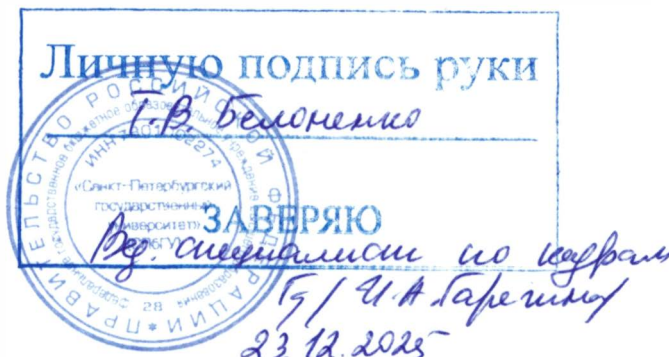 Личную подпись руки
Т.В. Белоненко
ЗАВЕРЯЮ
Вед. специалист по кадрам
И.А.
23.12.2025
ПРАВИТЕЛЬСТВО РОССИЙСКОЙ ФЕДЕРАЦИИ
«Санкт-Петербургский
государственный
университет»
28